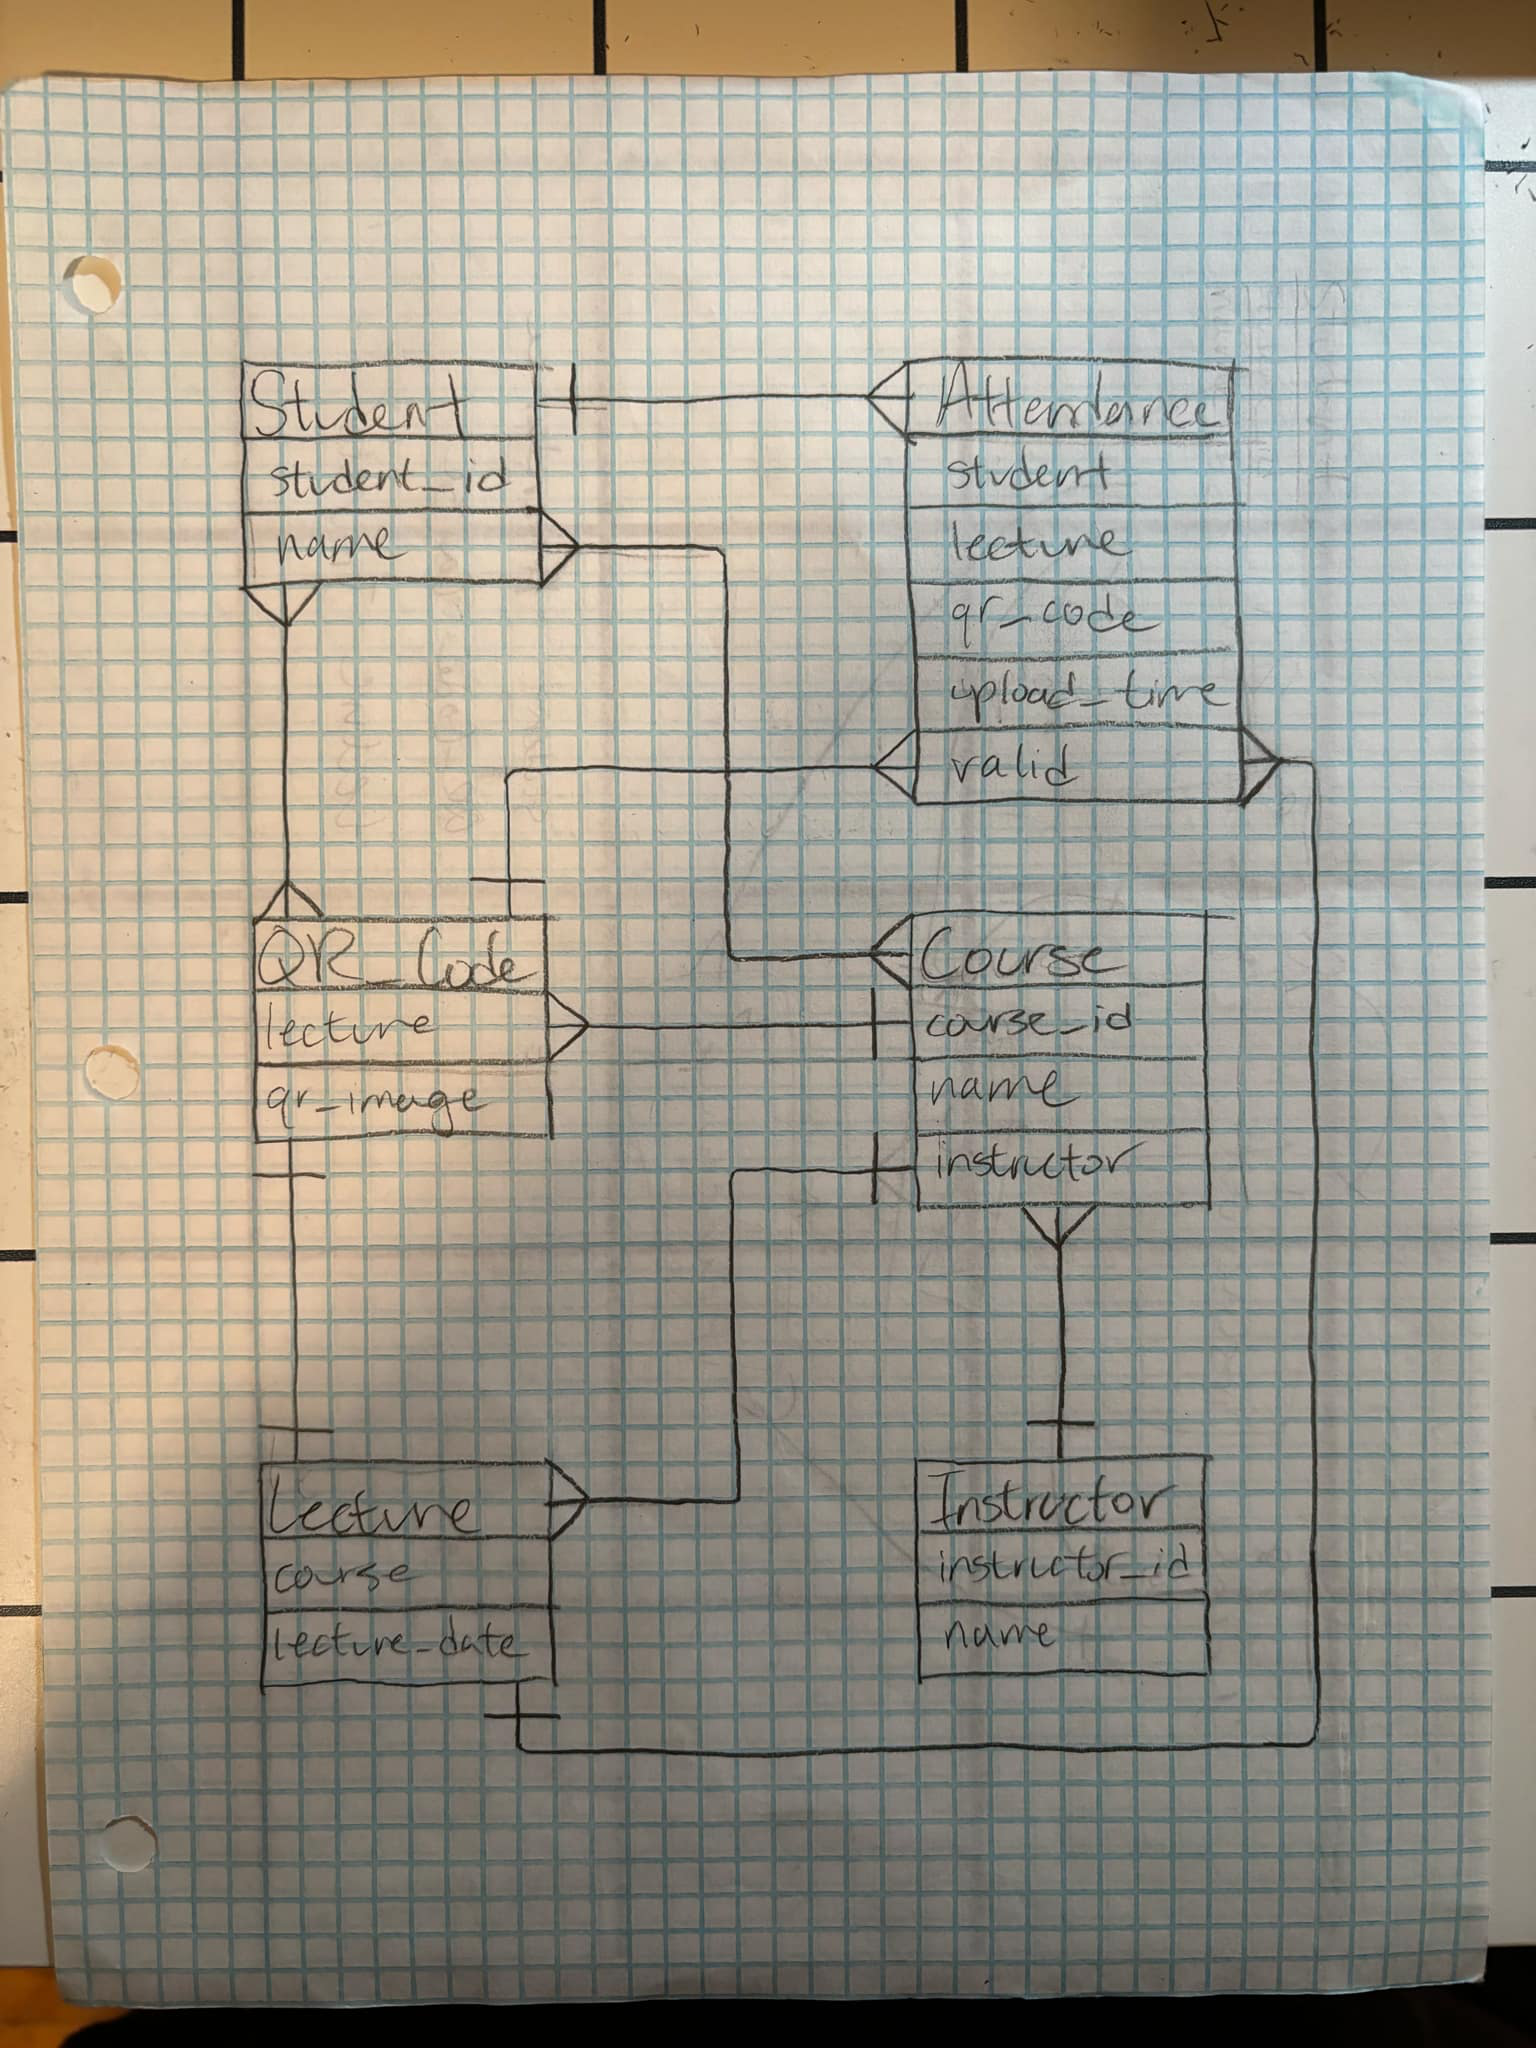 Student
student_id
name
Attendance
student
lecture
qr_code
upload_time
valid
QR_Code
lecture
qr_image
Course
course_id
name
instructor
Lecture
course
lecture_date
Instructor
instructor_id
name